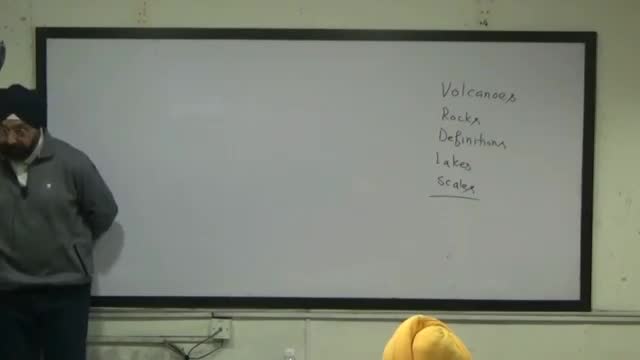 Volcanoes
Rocks
Definitions
Lakes
Scales